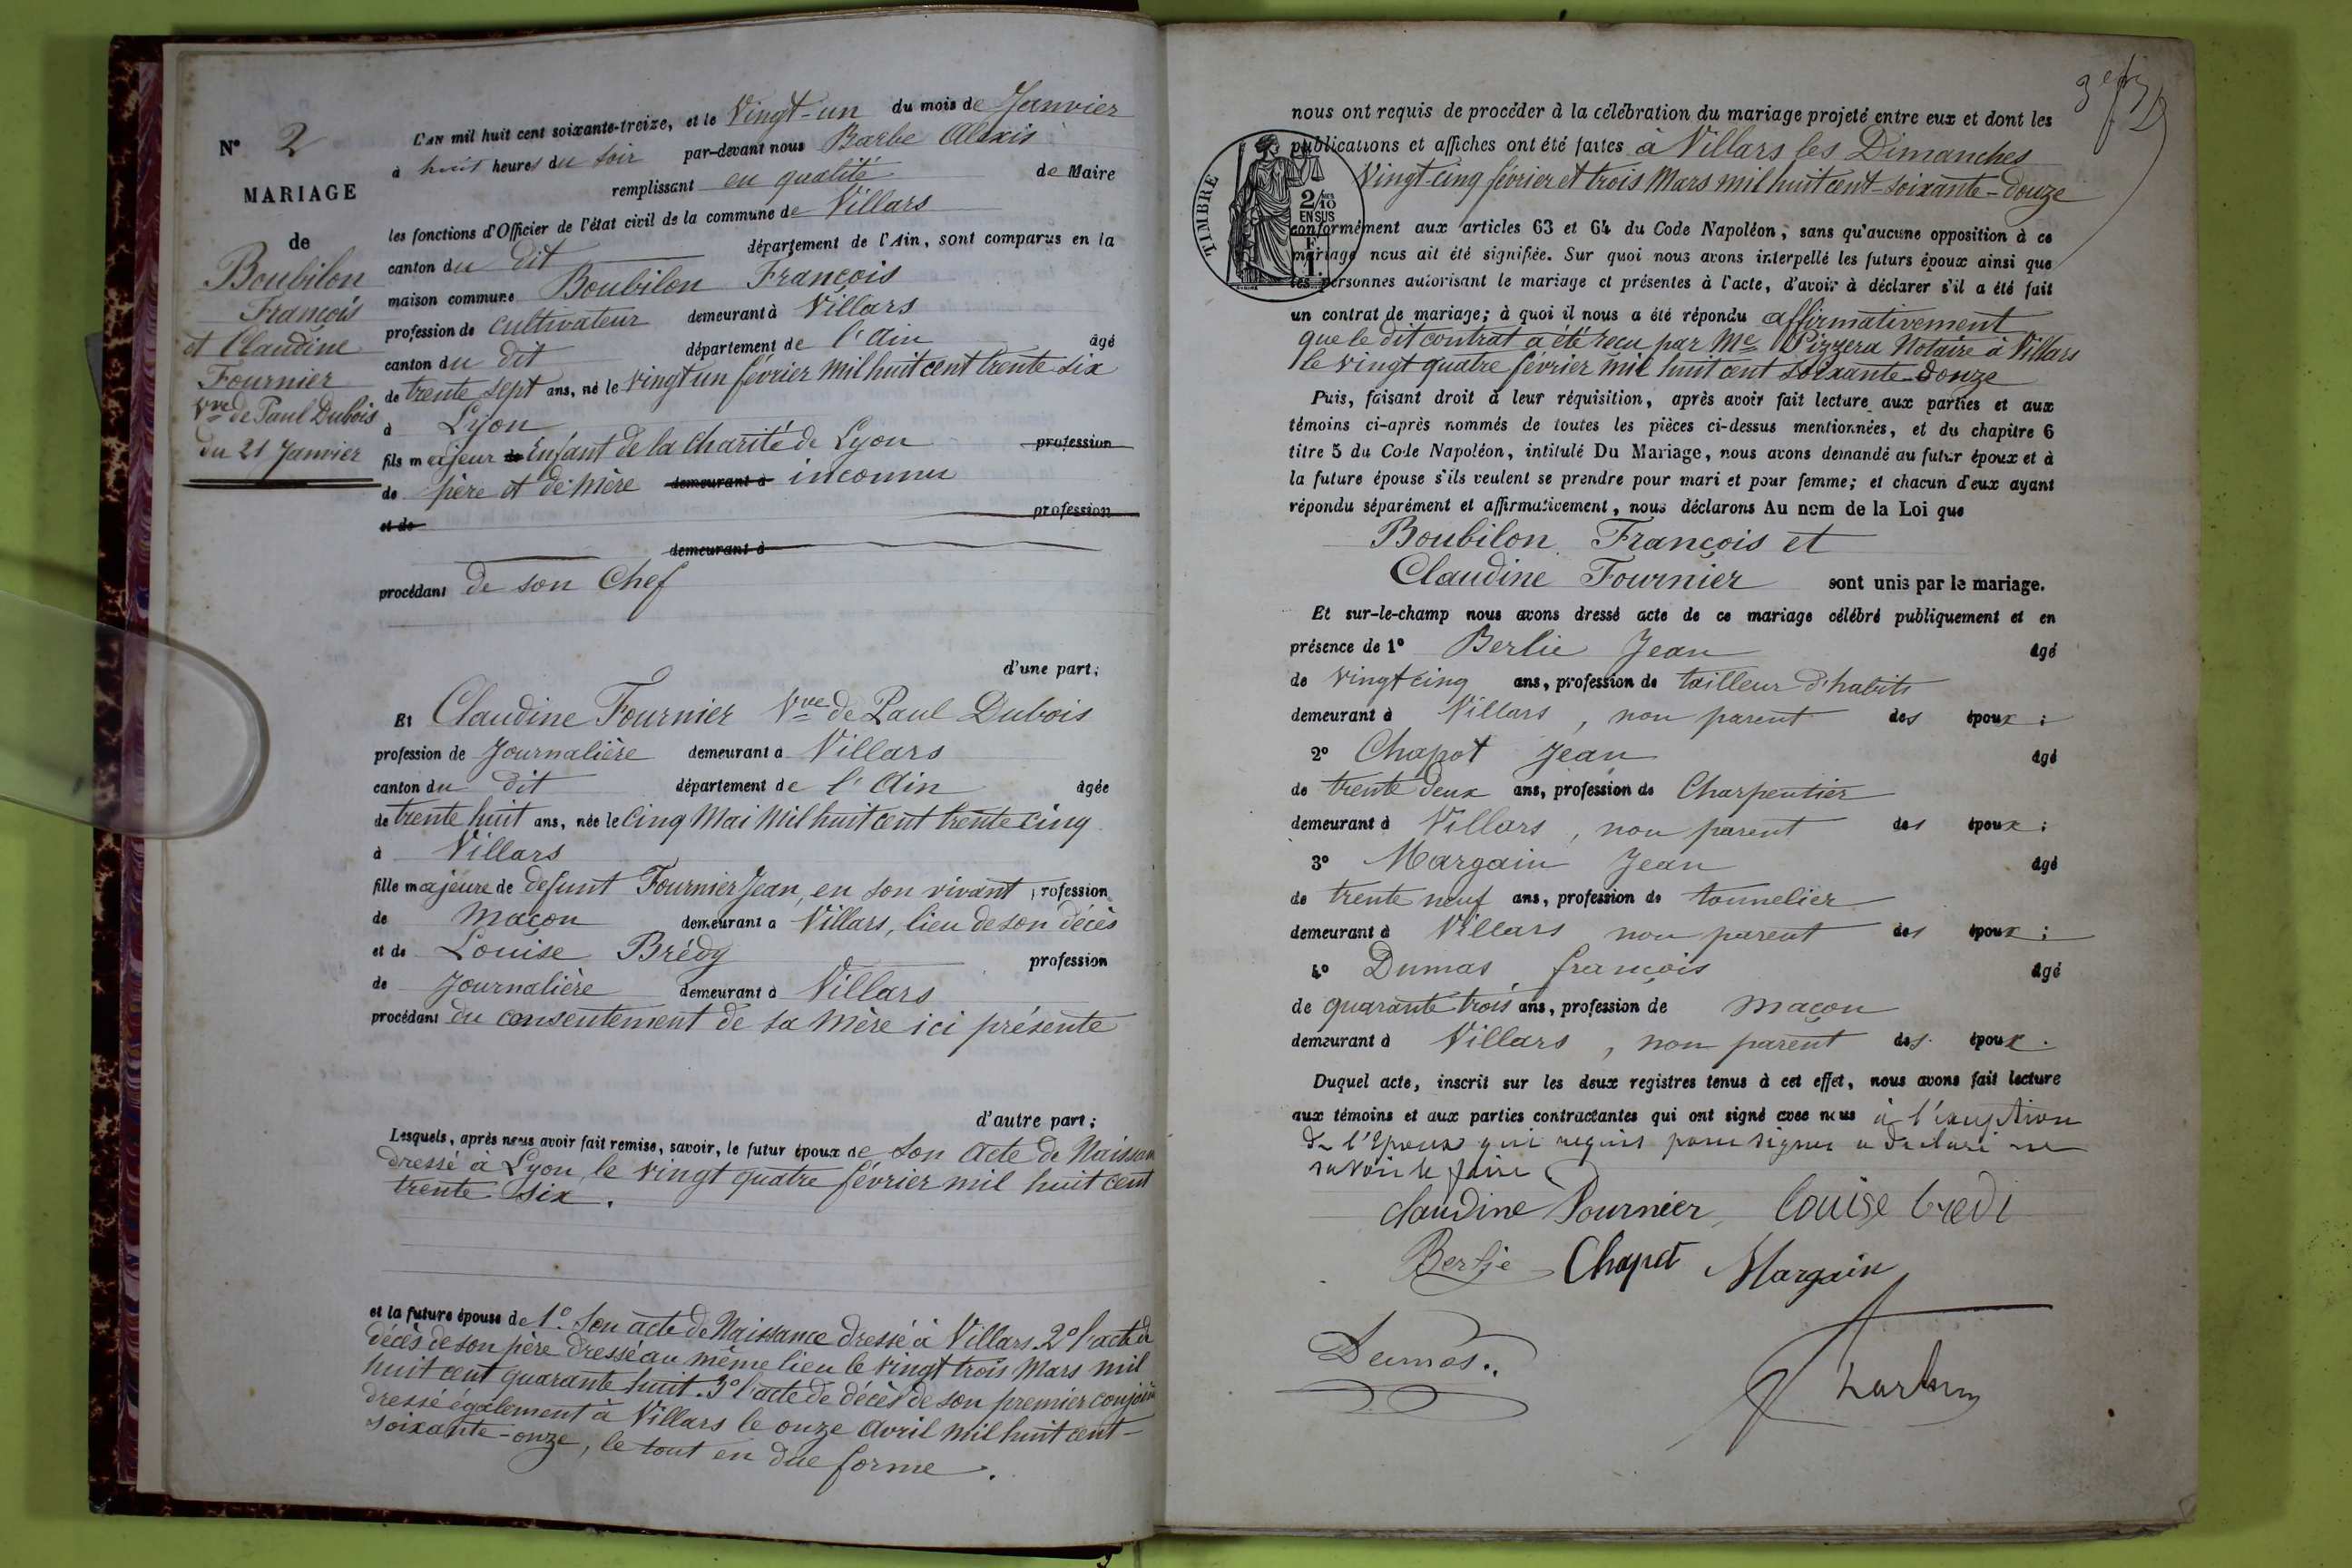 N° 2
MARIAGE
de
Boubilon
François
et Claudine
Fournier
Vve de Paul Dubois
du 21 Janvier
L'AN mil huit cent soixante-treize, et le Vingt-un du mois de Janvier
à huit heures du soir par-devant nous Barbe Alexis
remplissant en qualité de Maire
les fonctions d'Officier de l'état civil de la commune de Villars
canton du dit département de l'Ain, sont comparus en la
maison commune Boubilon François
profession de cultivateur demeurant à Villars
canton du dit département de l'Ain âgé
de trente sept ans, né le vingt un février mil huit cent trente six
à Lyon
fils majeur de Enfant de la charité de Lyon profession
de père et de mère demeurant à inconnu
et de profession
demeurant à
procédant de son Chef
d'une part;
Et Claudine Fournier Vve de Paul Dubois
profession de Journalière demeurant à Villars
canton du dit département de l'Ain âgée
de trente huit ans, née le Cinq Mai Mil huit cent trente cinq
à Villars
fille majeure de défunt Fournier Jean, en son vivant profession
de Maçon demeurant à Villars, lieu de son décès
et de Louise Brédy profession
de Journalière demeurant à Villars
procédant du consentement de sa Mère ici présente
d'autre part;
Lesquels, après nous avoir fait remise, savoir, le futur époux de son acte de Naissan
dressé à Lyon, le vingt quatre février mil huit cent
trente six.
et la future épouse de 1° Son acte de Naissance dressé à Villars. 2° l'acte de
décès de son père dressé au même lieu le vingt trois Mars mil
huit cent quarante huit. 3° l'acte de décès de son premier conjoint
dressé également à Villars le onze Avril mil huit cent-
soixante-onze, le tout en due forme.
nous ont requis de procéder à la célébration du mariage projeté entre eux et dont les
publications et affiches ont été faites à Villars les Dimanches
Vingt-cinq février et trois Mars mil huit cent-soixante-douze
TIMBRE
2/10 EN SUS
1 F.
conformément aux articles 63 et 64 du Code Napoléon, sans qu'aucune opposition à ce
mariage nous ait été signifiée. Sur quoi nous avons interpellé les futurs époux ainsi que
les personnes autorisant le mariage et présentes à l'acte, d'avoir à déclarer s'il a été fait
un contrat de mariage; à quoi il nous a été répondu affirmativement
que le dit contrat a été reçu par Me Pizzera Notaire à Villars
le vingt quatre février mil huit cent soixante-douze
Puis, faisant droit à leur réquisition, après avoir fait lecture aux parties et aux
témoins ci-après nommés de toutes les pièces ci-dessus mentionnées, et du chapitre 6
titre 5 du Code Napoléon, intitulé Du Mariage, nous avons demandé au futur époux et à
la future épouse s'ils veulent se prendre pour mari et pour femme; et chacun d'eux ayant
répondu séparément et affirmativement, nous déclarons Au nom de la Loi que
Boubilon François et
Claudine Fournier sont unis par le mariage.
Et sur-le-champ nous avons dressé acte de ce mariage célébré publiquement et en
présence de 1° Berlie Jean âgé
de vingt cinq ans, profession de tailleur d'habits
demeurant à Villars, non parent des époux;
2° Chapot Jean âgé
de trente deux ans, profession de Charpentier
demeurant à Villars, non parent des époux;
3° Margain Jean âgé
de trente neuf ans, profession de tonnelier
demeurant à Villars non parent des époux;
4° Dumas françois âgé
de quarante trois ans, profession de maçon
demeurant à Villars, non parent des époux.
Duquel acte, inscrit sur les deux registres tenus à cet effet, nous avons fait lecture
aux témoins et aux parties contractantes qui ont signé avec nous à l'exeption
de l'Epoux qui requis pour signer a déclaré ne
savoir le faire
Claudine Fournier, Louise bredi
Berlie Chapot Margain
Dumas.